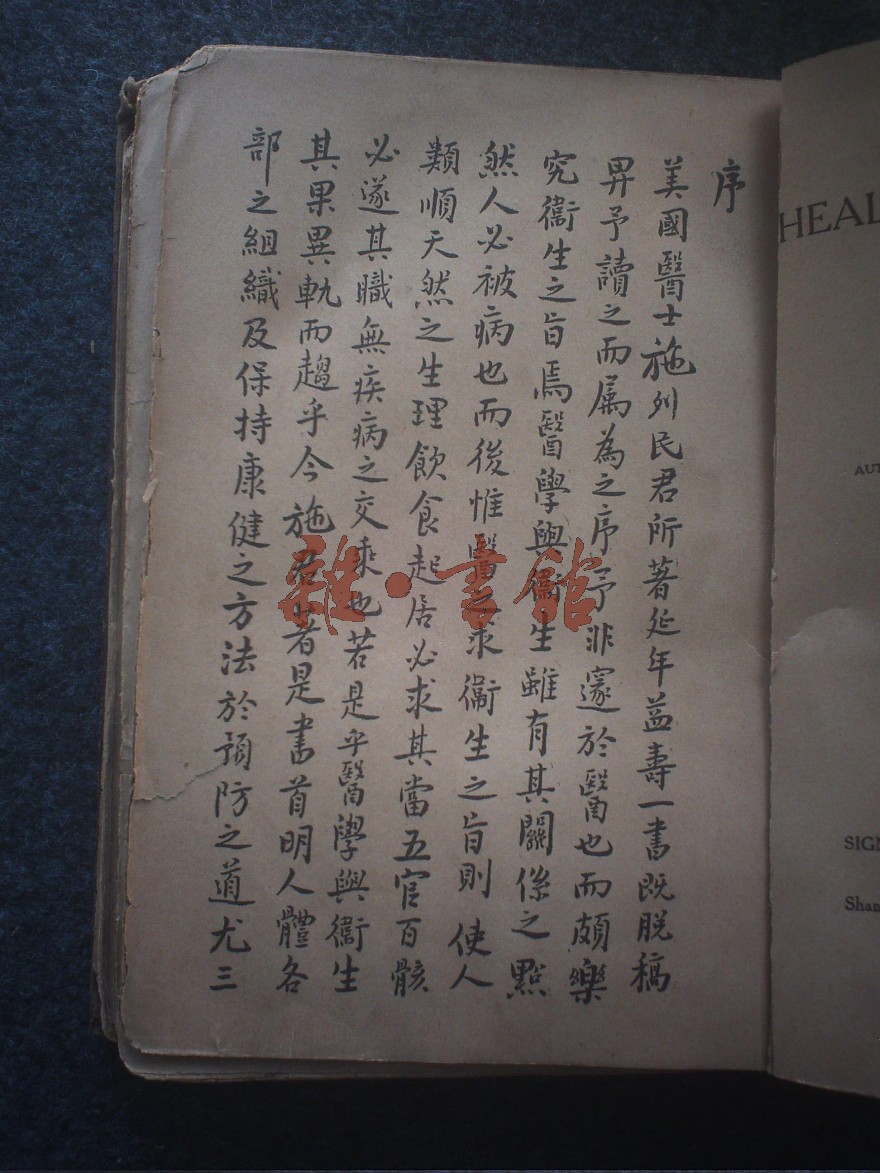 序
美國醫士施列民君所著延年益壽一書既脱稿
畀予讀之而属為之序予非邃於醫也而頗樂
究衞生之旨焉醫學與衞生雖有其關係之點
然人必被病也而後惟醫之求衞生之旨則使人
類順天然之生理飲食起居必求其當五官百骸
必遂其職無疾病之交乘也若是乎醫學與衞生
其果異軌而趨乎今施君著是書首明人體各
部之組織及保持康健之方法於預防之道尤三
HEAL
AUT
SIGN
Shan
雜·書館